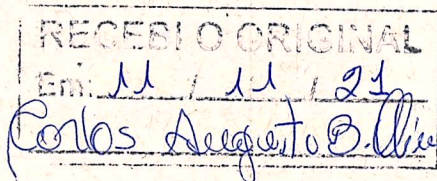 RECEBI O ORIGINAL
Em: 11 / 11 / 21
Carlos Augusto B.